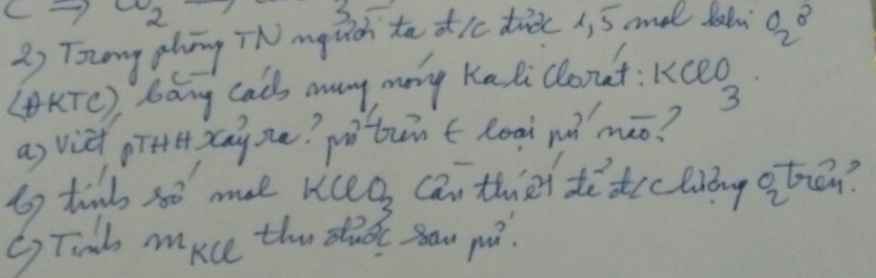 C → CO2 →
2) Trong phòng TN người ta đ/c được 1,5 mol khí O2 ở
(ĐKTC) bằng cách nung nóng Kali clorat: KClO3.
a) Viết PTHH xảy ra? pứ trên ∈ loại pứ nào?
b) tính số mol KClO3 cần thiết để đ/c lượng O2 trên?
c) Tính mKCl thu được sau pứ.